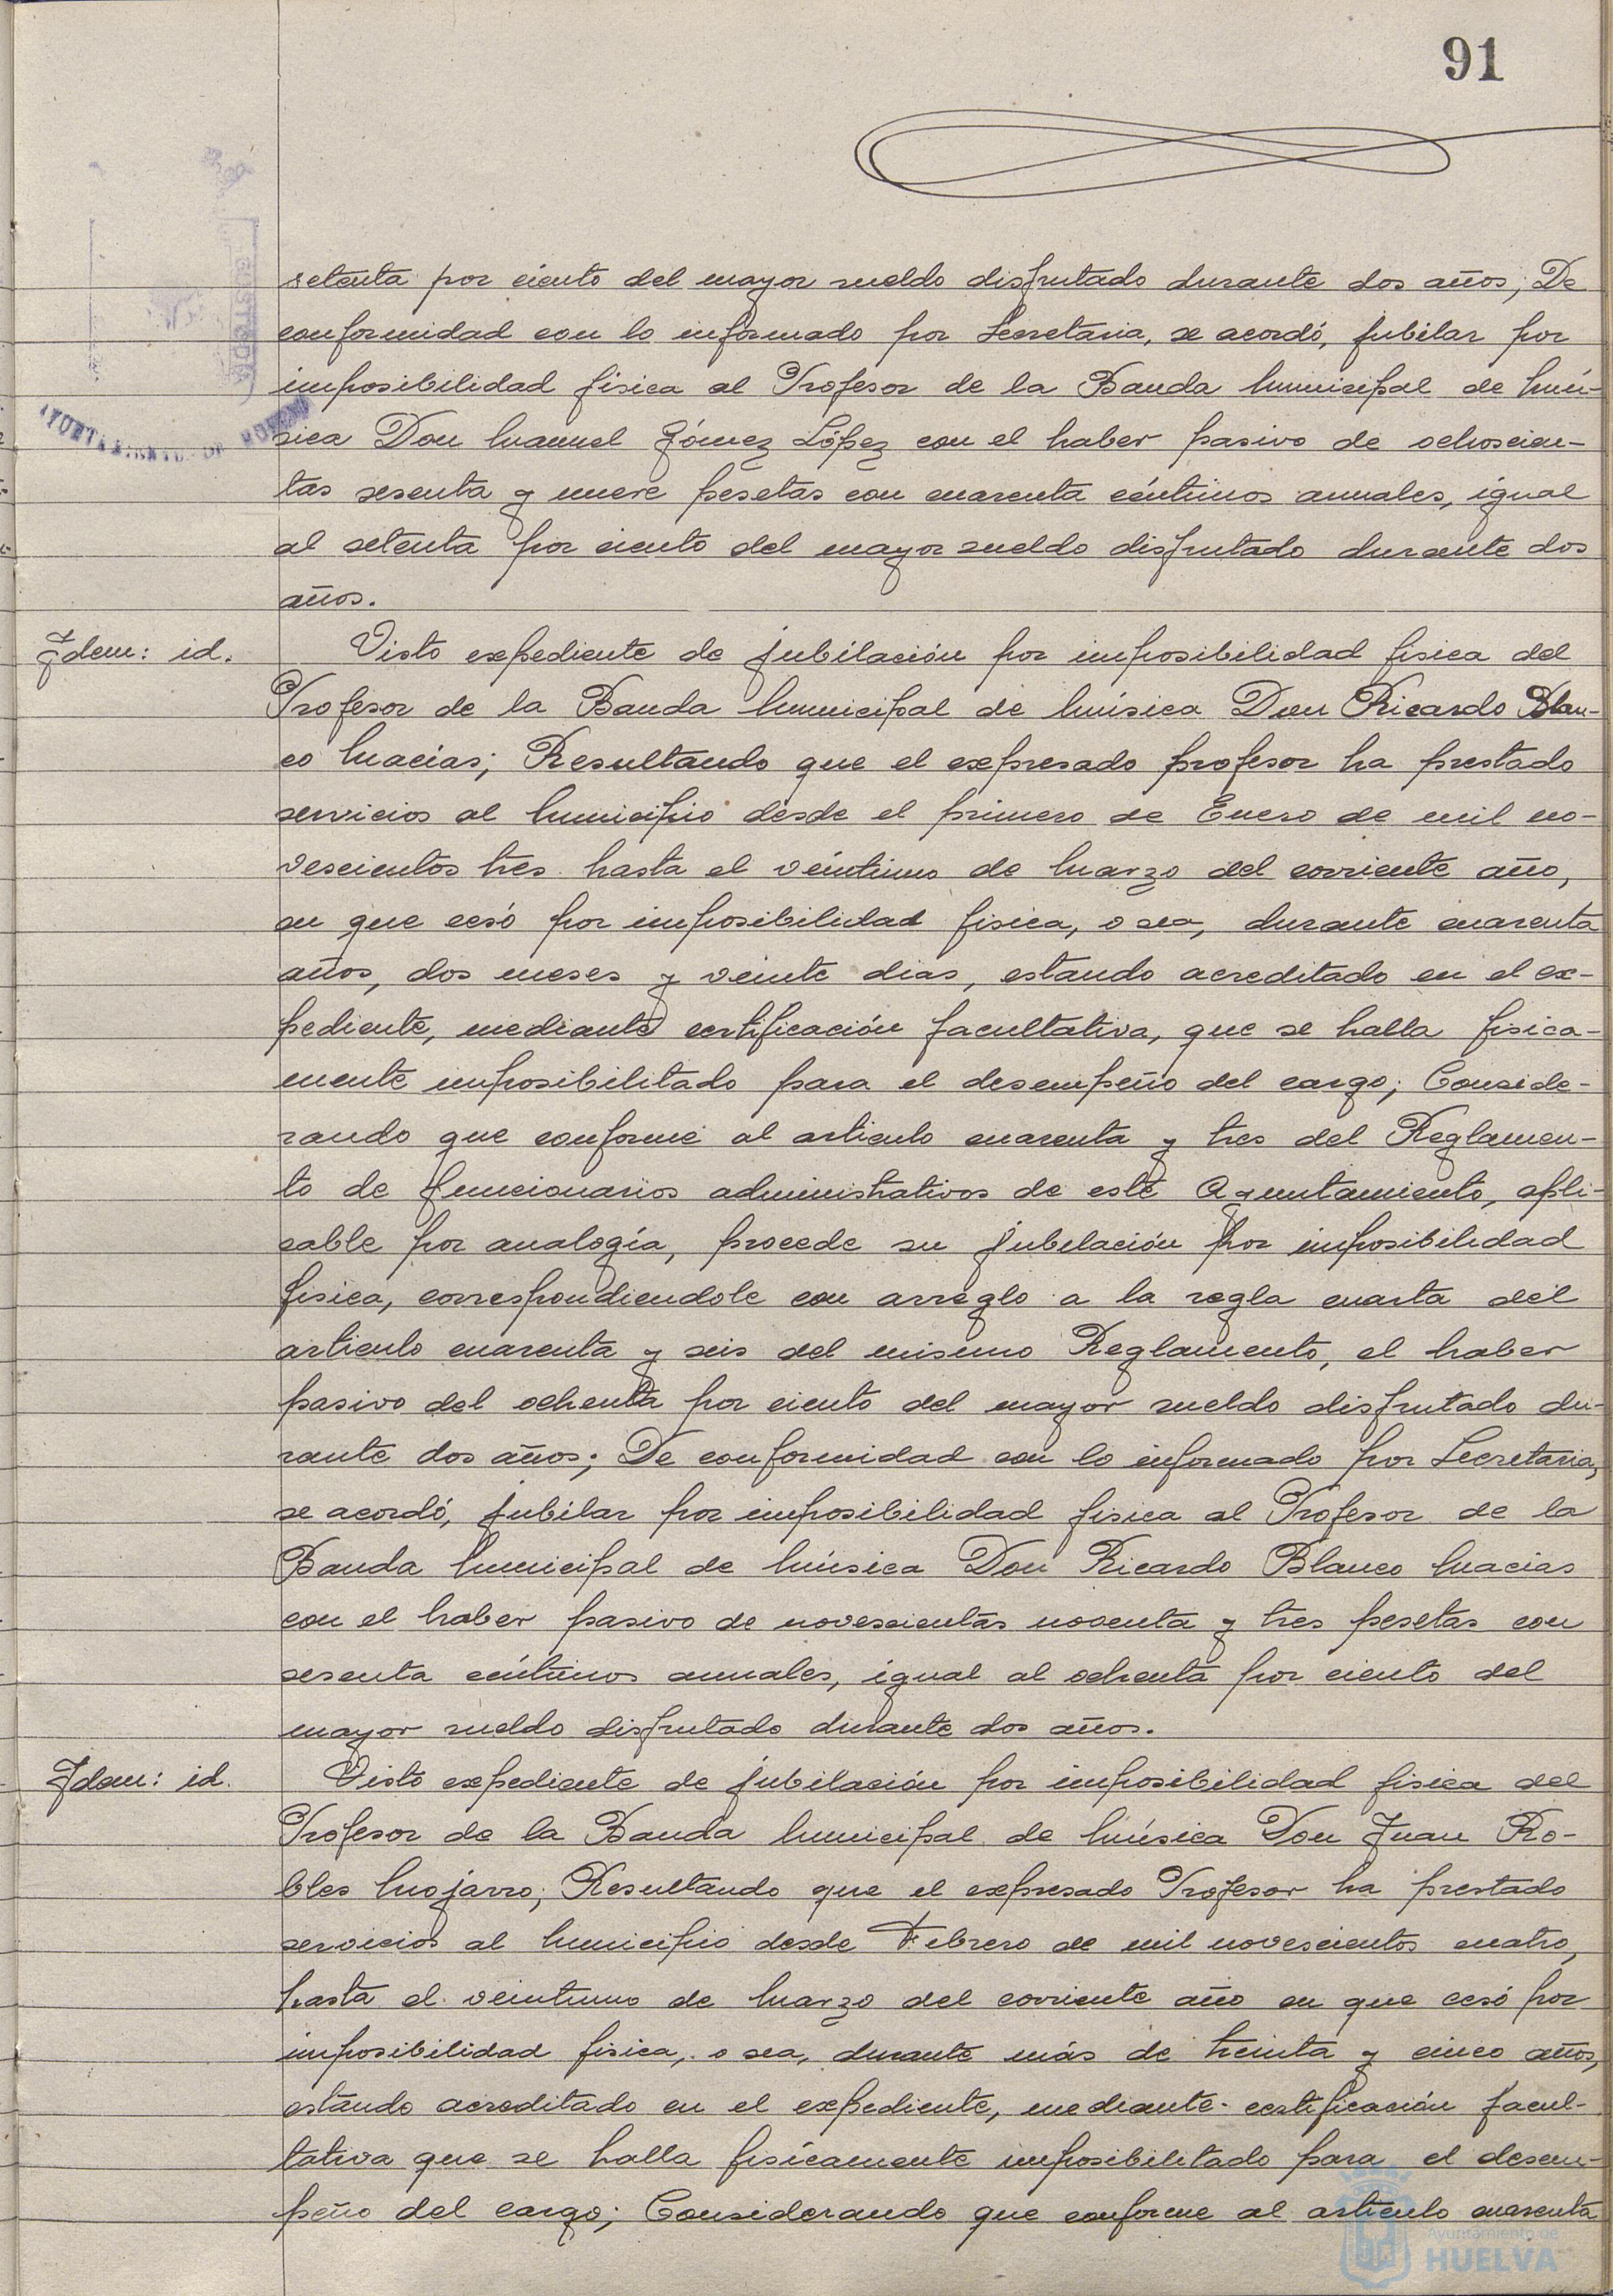 91
setenta por ciento del mayor sueldo disfrutado durante dos años; De
conformidad con lo informado por Secretaria, se acordó, jubilar por
imposibilidad fisica al Profesor de la Banda Municipal de Mú-
sica Don Manuel Gómez López con el haber pasivo de ochoscien-
tas sesenta y nueve pesetas con cuarenta céntimos anuales, igual
al setenta por ciento del mayor sueldo disfrutado durante dos
años.
Idem: id. Visto expediente de jubilación por imposibilidad fisica del
Profesor de la Banda Municipal de Música Don Ricardo Blan-
co Macías; Resultando que el expresado profesor ha prestado
servicios al Municipio desde el primero de Enero de mil no-
vescientos tres hasta el veintiuno de Marzo del corriente año,
en que cesó por imposibilidad fisica, o sea, durante cuarenta
años, dos meses y veinte dias, estando acreditado en el ex-
pediente, mediante certificación facultativa, que se halla fisica-
mente imposibilitado para el desempeño del cargo; Conside-
rando que conforme al articulo cuarenta y tres del Reglamen-
to de funcionarios administrativos de este Ayuntamiento, apli-
cable por analogía, procede su jubilación por imposibilidad
fisica, correspondiendole con arreglo a la regla cuarta del
articulo cuarenta y seis del mismo Reglamento, el haber
pasivo del ochenta por ciento del mayor sueldo disfrutado du-
rante dos años; De conformidad con lo informado por Secretaria,
se acordó, jubilar por imposibilidad fisica al Profesor de la
Banda Municipal de Música Don Ricardo Blanco Macias
con el haber pasivo de novescientas noventa y tres pesetas con
sesenta céntimos anuales, igual al ochenta por ciento del
mayor sueldo disfrutado durante dos años.
Idem: id. Visto expediente de jubilación por imposibilidad fisica del
Profesor de la Banda Municipal de Música Don Juan Ro-
bles Mojarro; Resultando que el expresado Profesor ha prestado
servicios al Municipio desde Febrero de mil novescientos cuatro,
hasta el veintiuno de Marzo del corriente año en que cesó por
imposibilidad fisica, o sea, durante más de treinta y cinco años,
estando acreditado en el expediente, mediante certificación facul-
tativa que se halla fisicamente imposibilitado para el desem-
peño del cargo; Considerando que conforme al articulo cuarenta
Ayuntamiento de
HUELVA